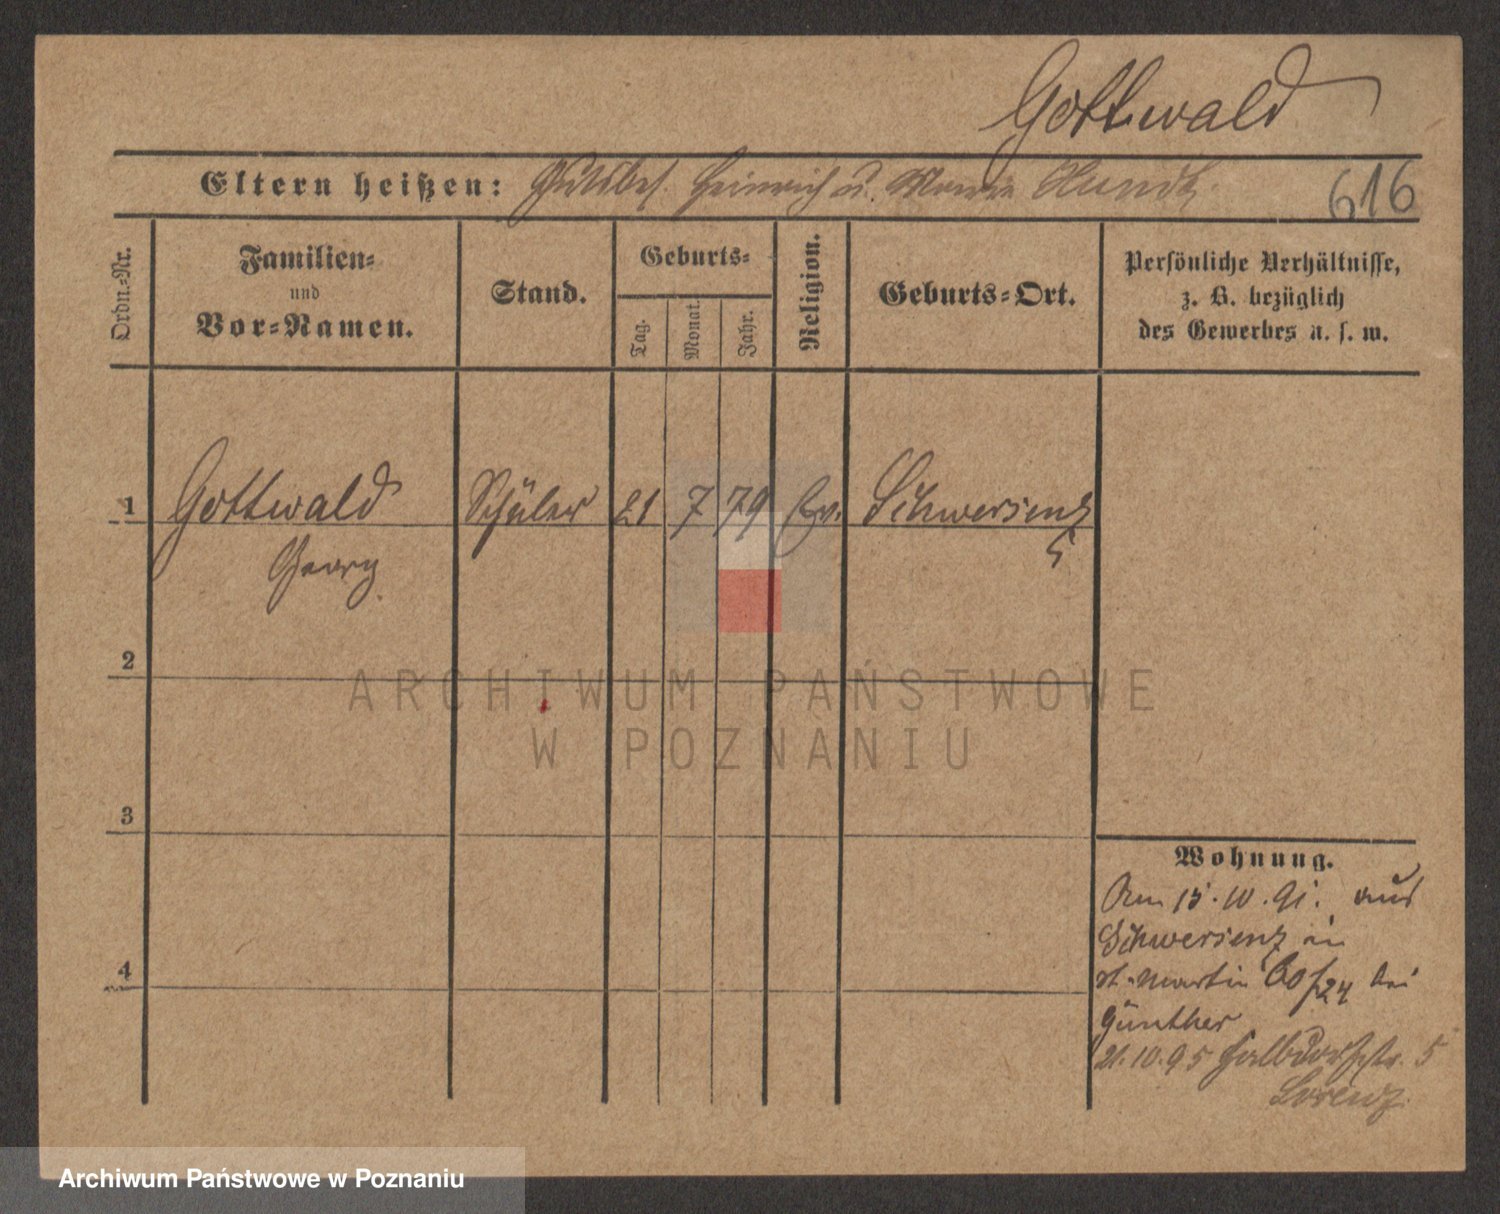 Gottwald
Eltern heißen: Gutsbes. Heinrich u. Marie Kundt.
616
Ordn.-Nr.
Familien-
und
Vor-Namen.
Stand.
Geburts-
Tag.
Monat.
Jahr.
Religion.
Geburts-Ort.
Persönliche Verhältnisse,
z. B. bezüglich
des Gewerbes u. s. w.
1 Gottwald Schüler 21 7 79 Ev. Schwersenz
Georg
2
3
4
ARCHIWUM PAŃSTWOWE
W POZNANIU
Wohnung.
Am 15.10.91. aus
Schwersenz in
St. Martin 60/24 bei
Günther
21.10.95 Halbdorfstr. 5
Lorenz.
Archiwum Państwowe w Poznaniu